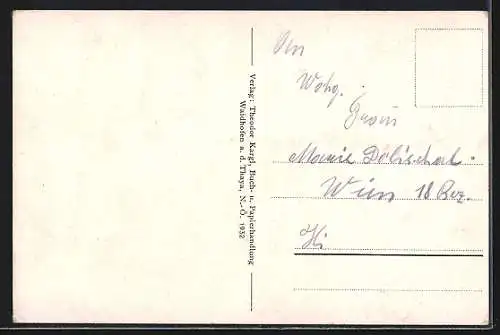 Verlag: Theodor Kargl, Buch- u. Papierhandlung
Waidhofen a. d. Thaya, N.-Ö. 1932
An
Wohg.
Frau
Marie
Wien 18 Bez.